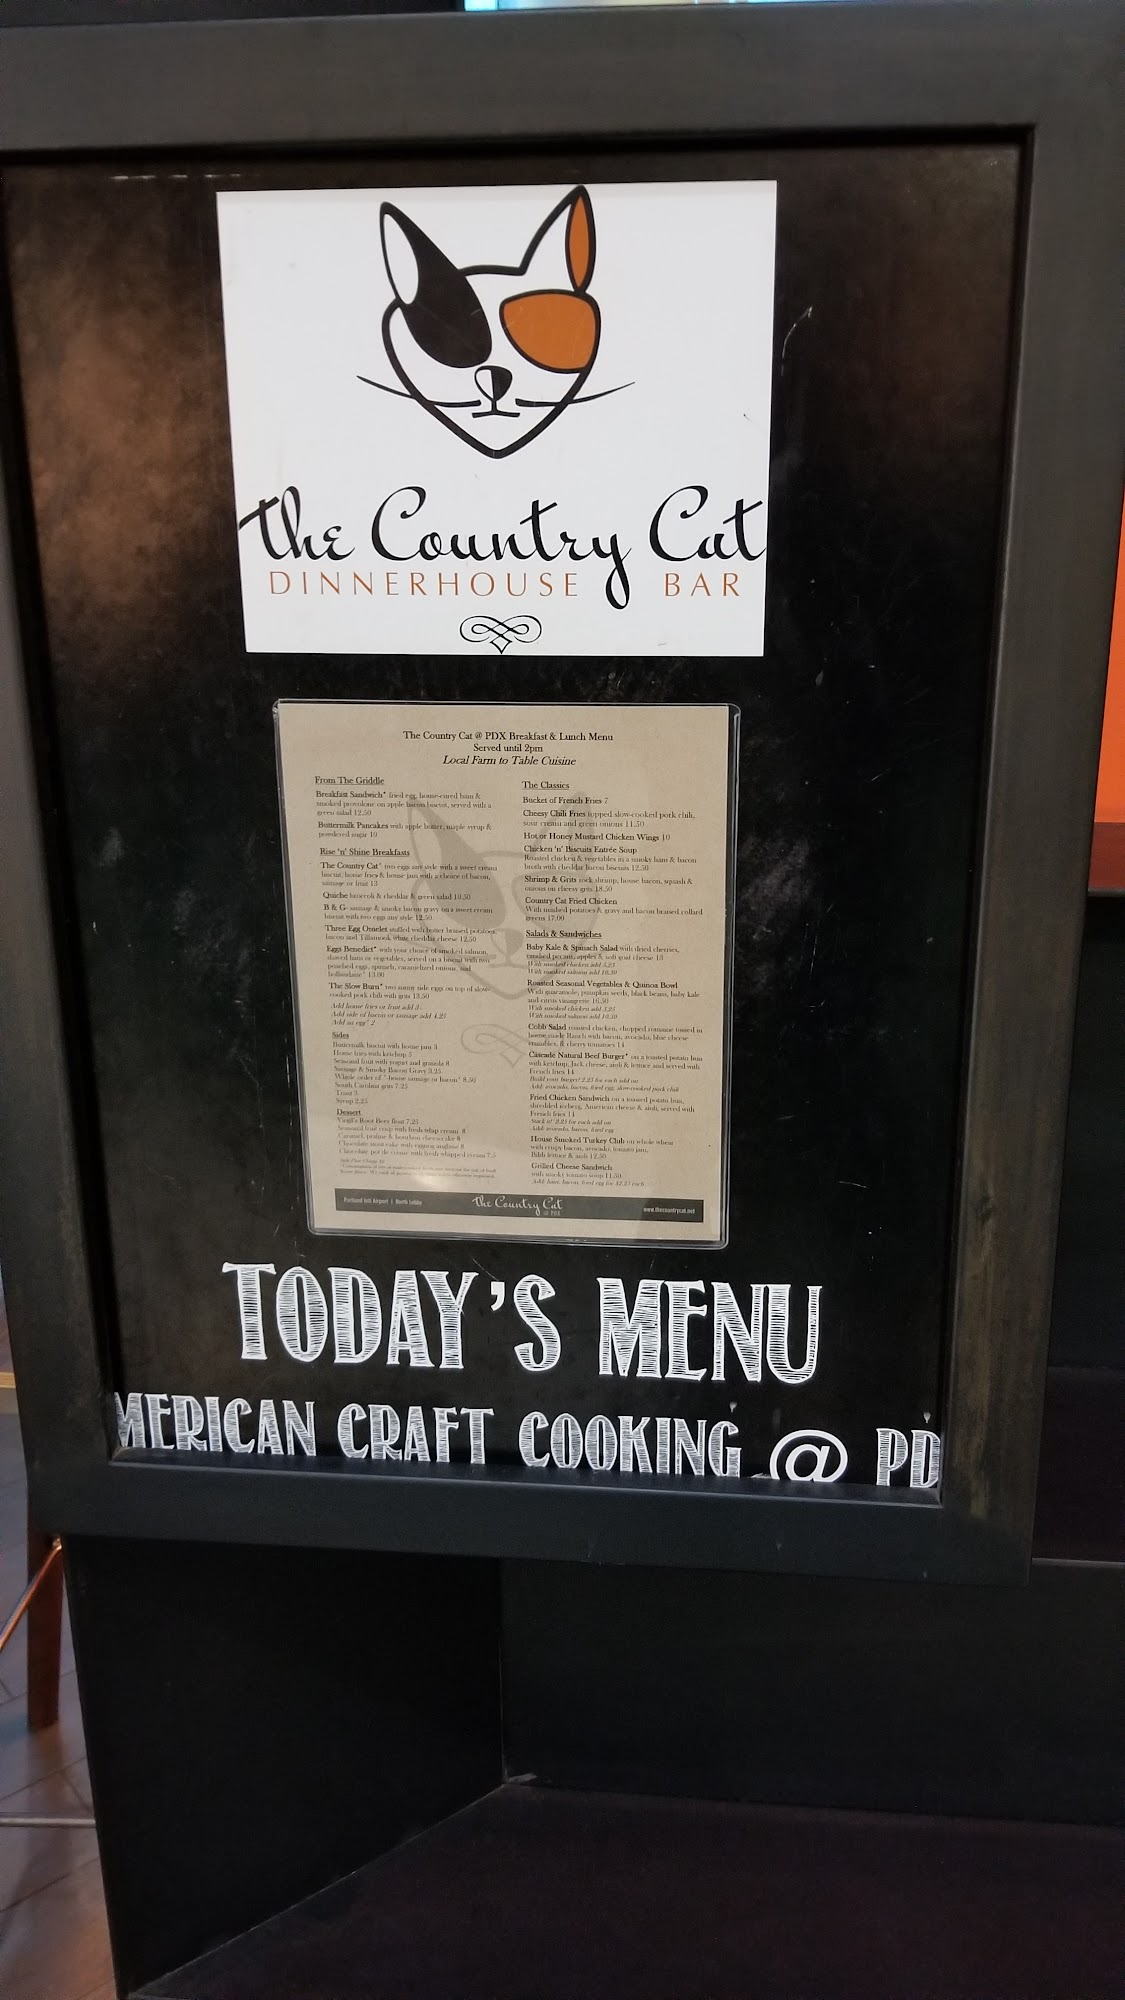 the Country Cat
DINNERHOUSE BAR
The Country Cat @ PDX Breakfast & Lunch Menu
Served until 2pm
Local Farm to Table Cuisine
From The Griddle
Breakfast Sandwich* fried egg, house-cured ham &
smoked provolone on apple bacon biscuit, served with a
green salad 12.50
Buttermilk Pancakes with apple butter, maple syrup &
powdered sugar 10
Rise 'n' Shine Breakfasts
The Country Cat* two eggs any style with a sweet cream
biscuit, home fries & house jam with a choice of bacon,
sausage or fruit 13
Quiche broccoli & cheddar & green salad 10.50
B & G- sausage & smoky bacon gravy on a sweet cream
biscuit with two eggs any style 12.50
Three Egg Omelet stuffed with butter braised potatoes,
bacon and Tillamook white cheddar cheese 12.50
Eggs Benedict* with your choice of smoked salmon,
shaved ham or vegetables, served on a biscuit with two
poached eggs, spinach, caramelized onions, and
hollandaise* 13.00
The Slow Burn* two sunny side eggs on top of slow-
cooked pork chili with grits 13.50
Add home fries or fruit add 3
Add side of bacon or sausage add 4.25
Add an egg* 2
Sides
Buttermilk biscuit with house jam 3
Home fries with ketchup 5
Seasonal fruit with yogurt and granola 8
Sausage & Smoky Bacon Gravy 3.25
Whole order of "house sausage or bacon" 8.50
South Carolina grits 7.25
Toast 3
Syrup 2.25
Dessert
Virgil's Root Beer float 7.25
Seasonal fruit crisp with fresh whip cream 8
Caramel, praline & bourbon cheesecake 8
Chocolate stout cake with eggnog anglaise 8
Chocolate pot de creme with fresh whipped cream 7.5
The Classics
Bucket of French Fries 7
Cheesy Chili Fries topped slow-cooked pork chili,
sour cream and green onions 11.50
Hot or Honey Mustard Chicken Wings 10
Chicken 'n' Biscuits Entrée Soup
Roasted chicken & vegetables in a smoky ham & bacon
broth with cheddar bacon biscuits 12.50
Shrimp & Grits rock shrimp, house bacon, squash &
onions on cheesy grits 18.50
Country Cat Fried Chicken
With mashed potatoes & gravy and bacon braised collard
greens 17.00
Salads & Sandwiches
Baby Kale & Spinach Salad with dried cherries,
smoked pecans, apples & soft goat cheese 13
With smoked chicken add 5.25
With smoked salmon add 10.50
Roasted Seasonal Vegetables & Quinoa Bowl
With guacamole, pumpkin seeds, black beans, baby kale
and citrus vinaigrette 16.50
With smoked chicken add 5.25
With smoked salmon add 10.50
Cobb Salad roasted chicken, chopped romaine tossed in
house made Ranch with bacon, avocado, blue cheese
crumbles, & cherry tomatoes 14
Cascade Natural Beef Burger* on a toasted potato bun
with ketchup, Jack cheese, aioli & lettuce and served with
French fries 14
Build your burger! 2.25 for each add on
Add: avocado, bacon, fried egg, slow-cooked pork chili
Fried Chicken Sandwich on a toasted potato bun,
shredded iceberg, American cheese & aioli, served with
French fries 14
Stack it! 2.25 for each add on
Add: avocado, bacon, fried egg
House Smoked Turkey Club on whole wheat
with crispy bacon, avocado, tomato jam,
Bibb lettuce & aioli 12.50
Grilled Cheese Sandwich
with smoky tomato soup 11.50
Add: ham, bacon, fried egg for $2.25 each
Portland Intl Airport | North Lobby
The Country Cat
@ PDX
www.thecountrycat.net
TODAY'S MENU
MERICAN CRAFT COOKING @ PD